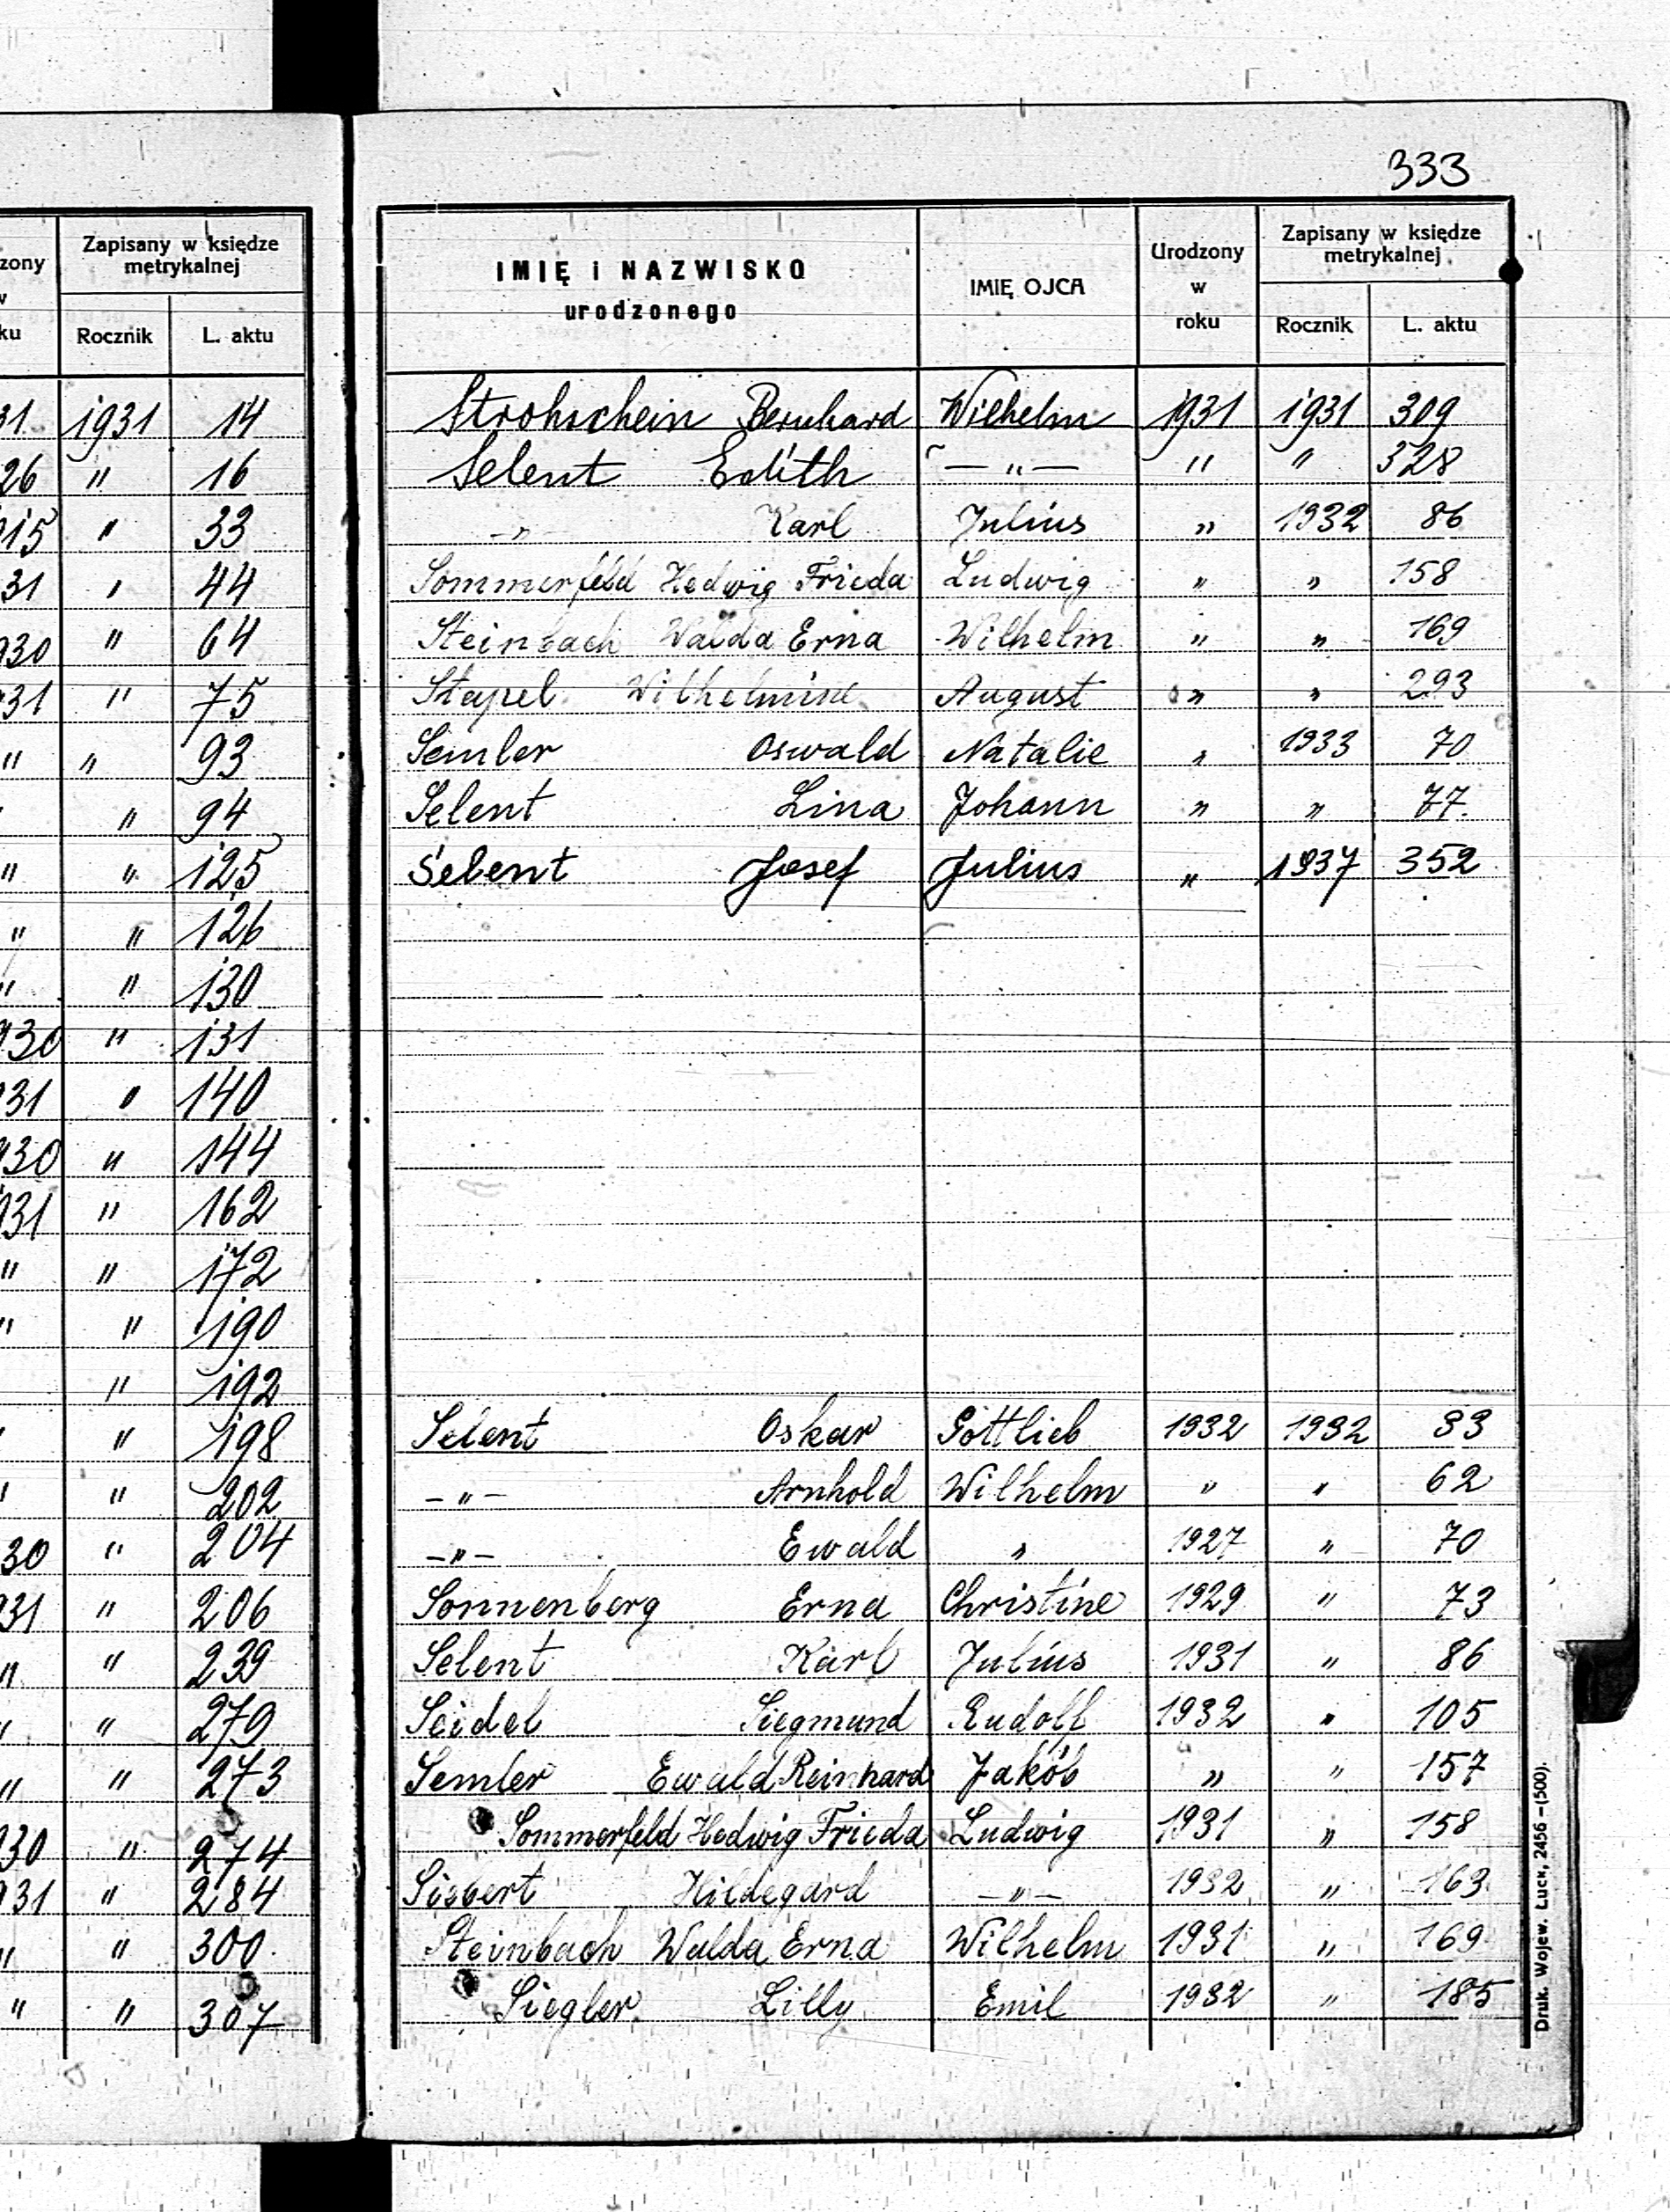 333
zony
w
ku
Zapisany w księdze
metrykalnej
Rocznik
L. aktu
31 1931 14
26 " 16
915 " 33
31 " 44
930 " 64
931 " 75
" " 93
" " 94
" " 125
" " 126
" " 130
930 " 131
931 " 140
930 " 144
931 " 162
" " 172
" " 190
" 192
" " 198
" " 202
30 " 204
931 " 206
" " 239
" " 279
" " 273
930 " 274
931 " 284
" " 300
" " 307
IMIĘ i NAZWISKO
urodzonego
IMIĘ OJCA
Urodzony
w
roku
Zapisany w księdze
metrykalnej
Rocznik
L. aktu
Strohschein Bernhard Wilhelm 1931 1931 309
Selent Edith — " — " " 328
- " - Karl Julius " 1932 86
Sommerfeld Hedwig Frieda Ludwig " " 158
Steinbach Walda Erna Wilhelm " " 169
Stapel Wilhelmine August " " 293
Semler Oswald Natalie " 1933 70
Selent Lina Johann " " 77
Selent Josef Julius " 1937 352
Selent Oskar Gottlieb 1932 1932 33
- " - Arnhold Wilhelm " " 62
- " - Ewald " 1927 " 70
Sonnenberg Erna Christine 1929 " 73
Selent Karl Julius 1931 " 86
Seidel Siegmund Rudolf 1932 " 105
Semler Ewald Reinhard Jakób " " 157
Sommerfeld Hedwig Frieda Ludwig 1931 " 158
Siebert Hildegard - " - 1932 " 163
Steinbach Walda Erna Wilhelm 1931 " 169
Siegler Lilly Emil 1932 " 185
Druk. Wojew. Łuck, 2456 -(500).